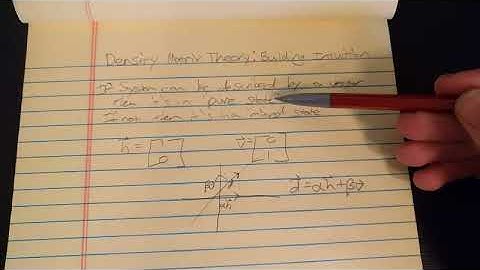 Density Matrix Theory: Building Intuition
If System can be described by a vector
then it's in a pure state
If not then it's in a mixed state
h⃗ = [1 0] v⃗ = [0 1]
d⃗ = αh⃗ + βv⃗